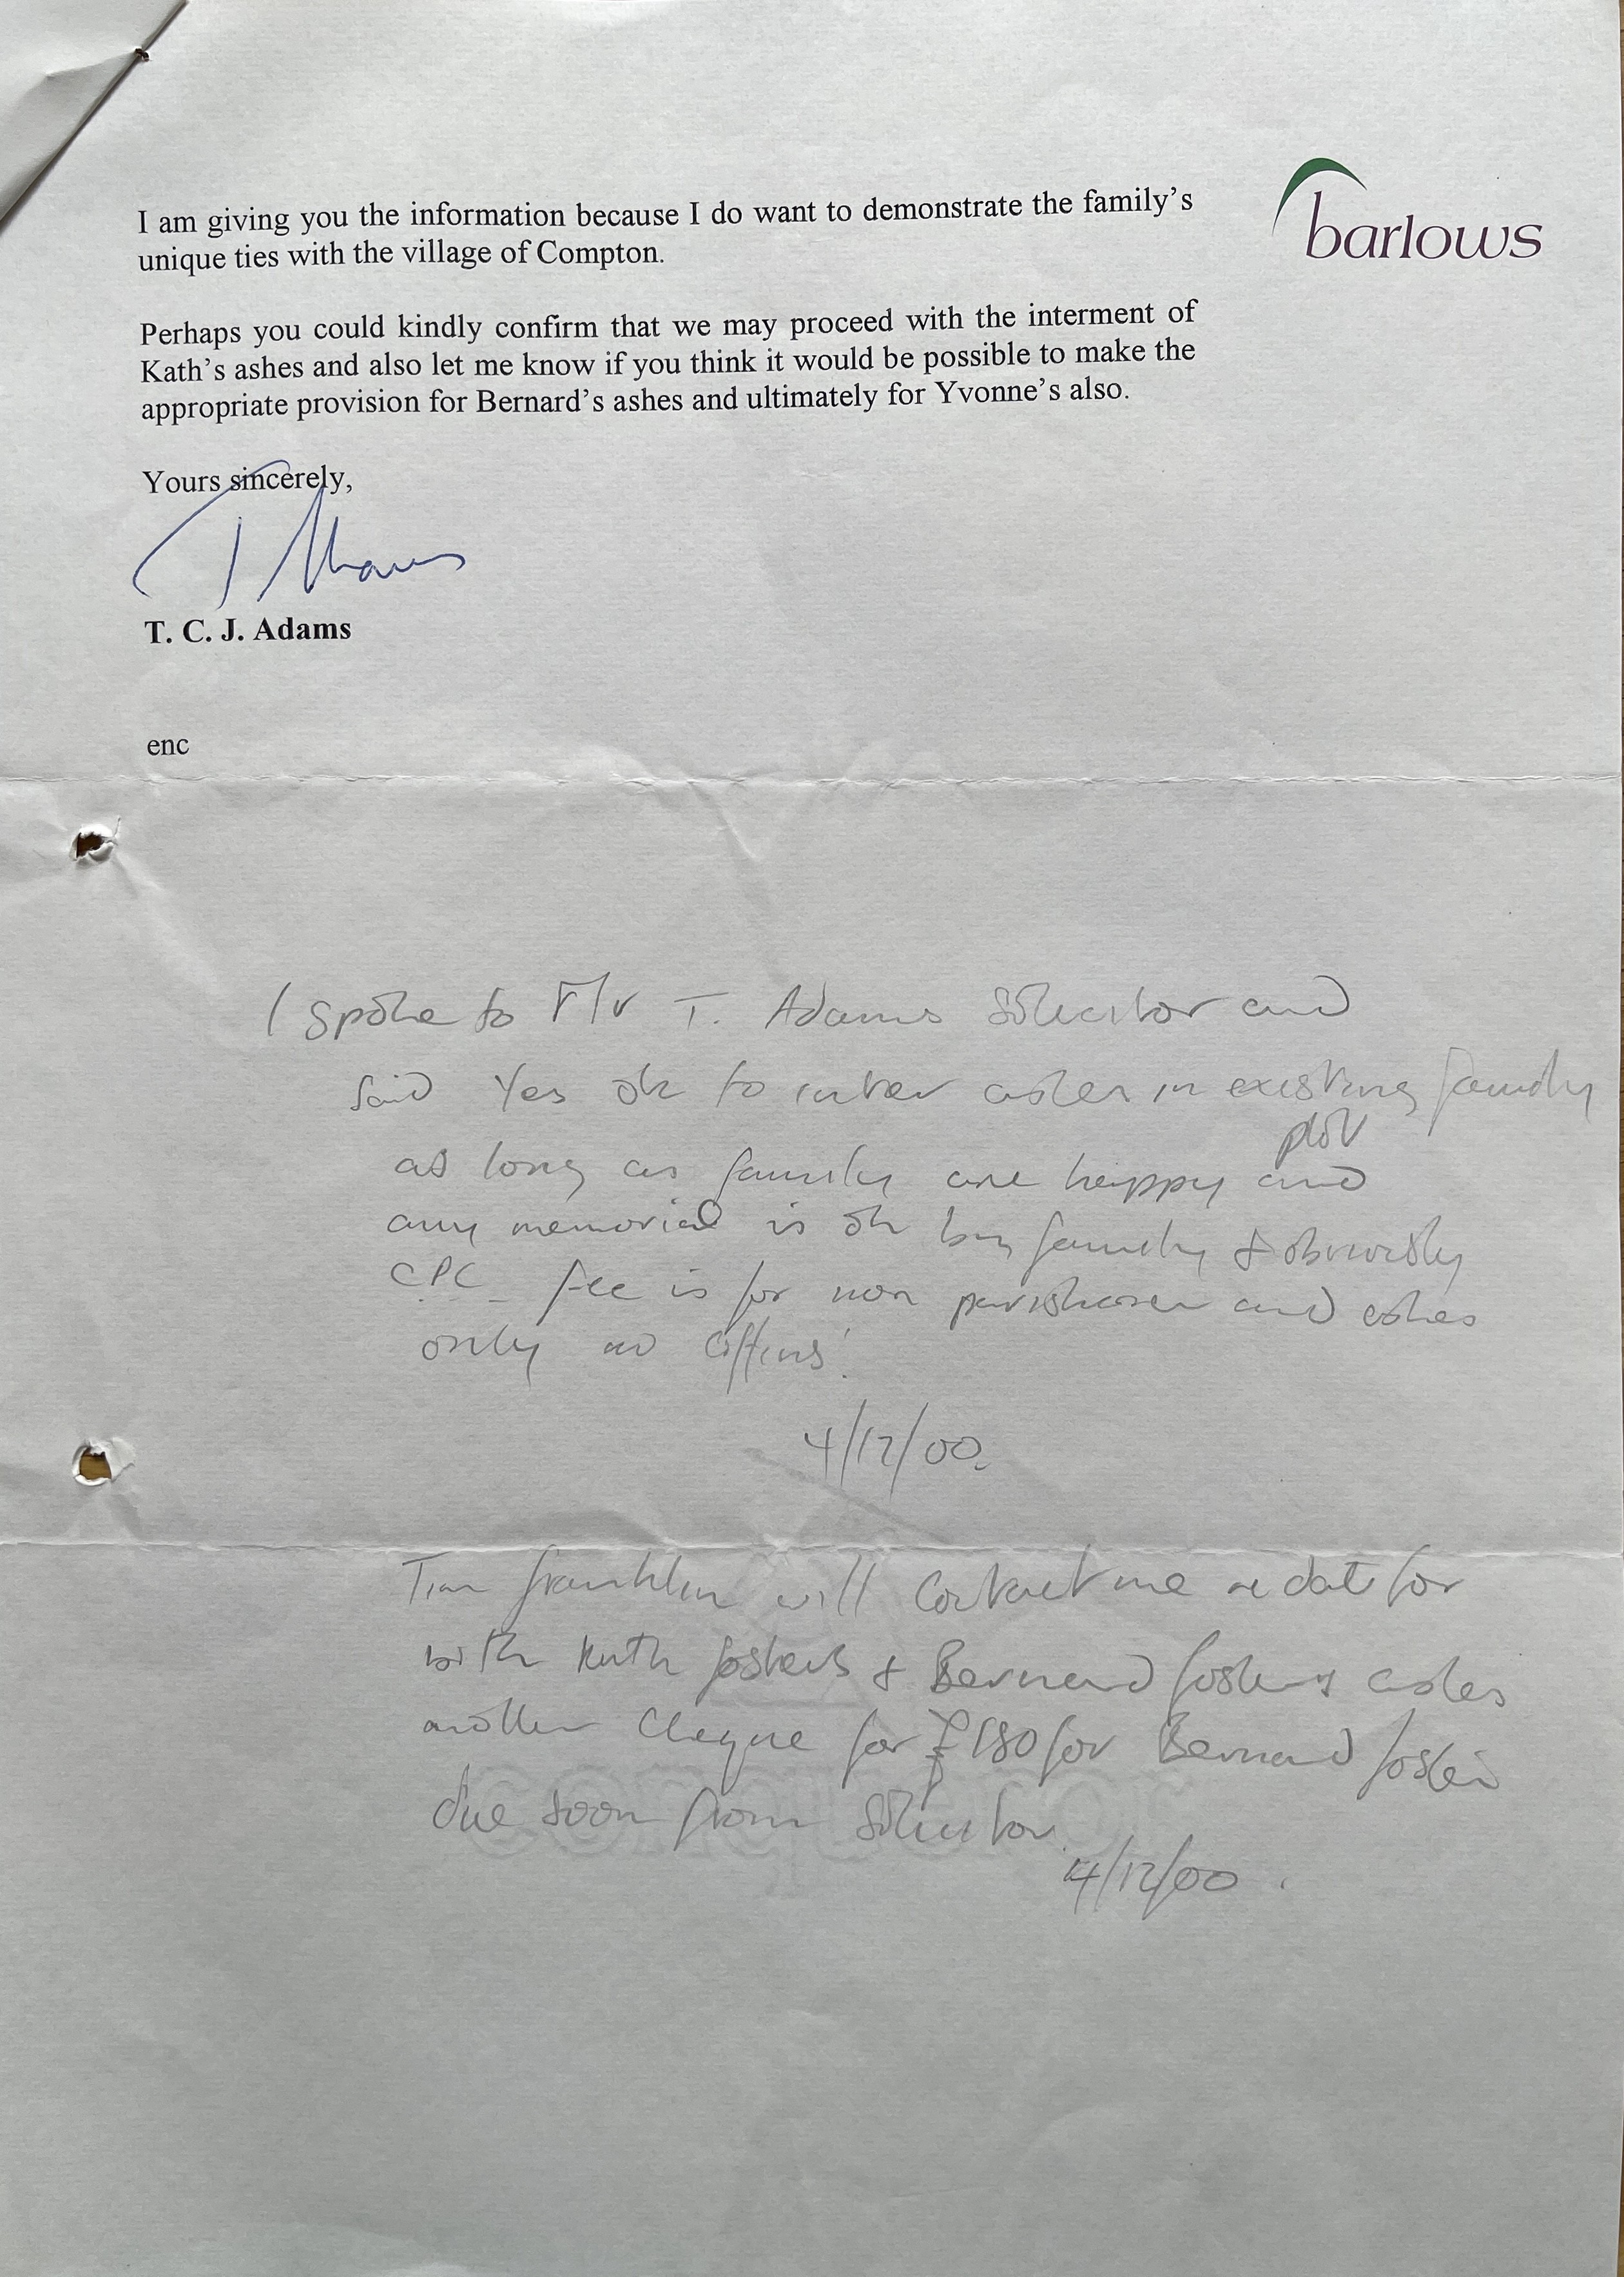 barlows
I am giving you the information because I do want to demonstrate the family's
unique ties with the village of Compton.
Perhaps you could kindly confirm that we may proceed with the interment of
Kath's ashes and also let me know if you think it would be possible to make the
appropriate provision for Bernard's ashes and ultimately for Yvonne's also.
Yours sincerely,
T. C. J. Adams
enc
I spoke to Mr T. Adams Solicitor and
said Yes ok to inter ashes in existing family
plot
as long as family are happy and
any memorial is ok by family & obviously
CPC fee is for non parishioner and ashes
only no coffins!
4/12/00.
Tim Franklin will contact me re date for
with Foster & Bernard Fosters ashes
another cheque for £180 for Bernard Foster
due soon from Solicitor.
4/12/00.
conqueror